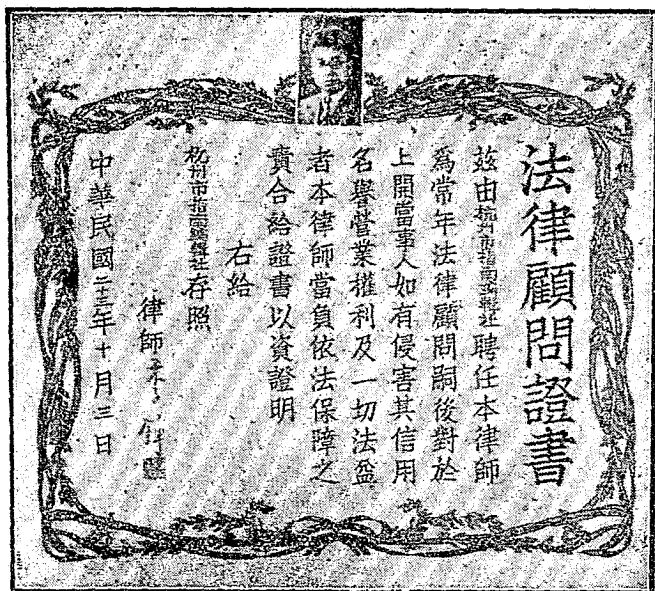 法律顧問證書
茲由杭州市指南編輯社聘任本律師
為常年法律顧問嗣後對於
上開當事人如有侵害其信用
名譽營業權利及一切法益
者本律師當負依法保障之
責合給證書以資證明
右給
杭州市指南編輯社存照
律師
中華民國二十三年十月三日